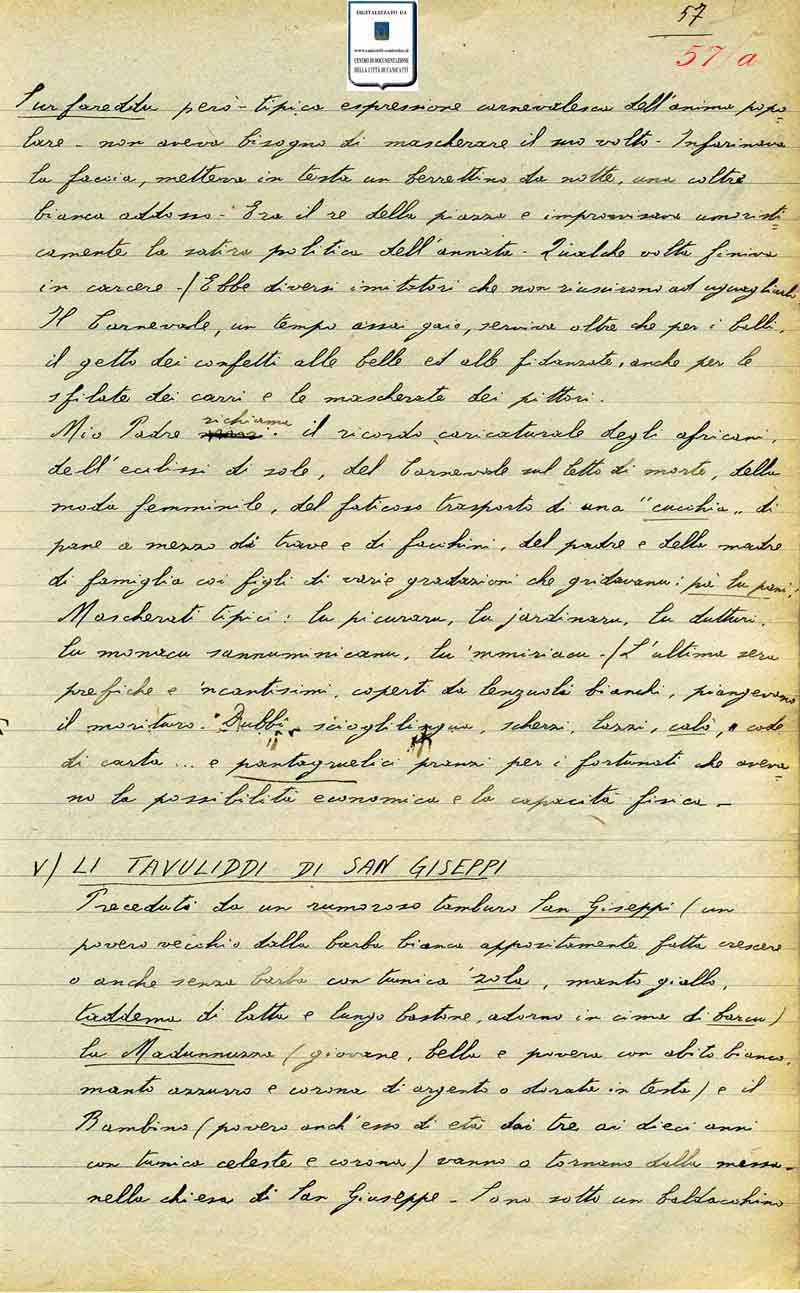 DIGITALIZZATO DA
www.canicatti-centrodoc.it
CENTRO DI DOCUMENTAZIONE
DELLA CITTÀ DI CANICATTÌ
57
57/a
Surfareddu però - tipica espressione carnevalesca dell'anima popo=
lare - non aveva bisogno di mascherare il suo volto - Infarinava
la faccia, metteva in testa un berrettino da notte, una coltre
bianca addosso - Era il re della piazza e improvvisava umoristi=
camente la satira politica dell'annata - Qualche volta finiva
in carcere -/ Ebbe diversi imitatori che non riuscirono ad uguagliarlo.
Il Carnevale, un tempo assai gaio, serviva oltre che per i balli,
il getto dei confetti alle belle ed alle fidanzate, anche per le
sfilate dei carri e le mascherate dei pittori.
Mio Padre richiama il ricordo caricaturale degli africani,
dell'eclissi di sole, del Carnevale sul letto di morte, della
moda femminile, del faticoso trasporto di una "cucchia" di
pane a mezzo di trave e di facchini, del padre e della madre
di famiglia coi figli di varie gradazioni che gridavanu: pà lu pani!
Mascherati tipici: lu picuraru, lu jardinaru, lu dutturi,
lu monacu sannuminicanu, lu 'mmiriacu -/ L'ultima sera
prefiche e 'ncantisimi, coperti da lenzuola bianchi, piangevano
il morituro. Dubbi, scioglilingua, scherzi, lazzi, calò, code
di carta ... e pantagruelici pranzi per i fortunati che aveva=
no la possibilità economica e la capacità fisica -
V/ LI TAVULIDDI DI SAN GISEPPI
Preceduti da un rumoroso tamburo San Giseppi (un
povero vecchio dalla barba bianca appositamente fatta crescere
o anche senza barba con tunica 'zola, manto giallo,
taddema di latta e lungo bastone, adorno in cima di barcu)
la Madunnuzza (giovane, bella e povera con abito bianco,
manto azzurro e corona di argento o dorata in testa) e il
Bambino (povero anch'esso di età dai tre ai dieci anni
con tunica celeste e corona) vanno o tornano dalla messa
nella chiesa di San Giuseppe - Sono sotto un baldacchino